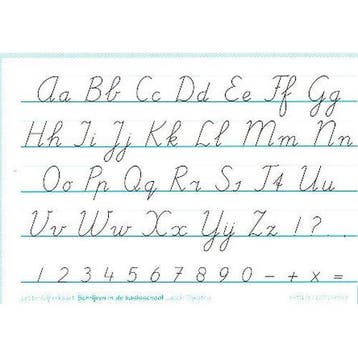 Aa Bb Cc Dd Ee Ff Gg
Hh Ii Jj Kk Ll Mm Nn
Oo Pp Qq Rr Ss Tt Uu
Vv Ww Xx Yy Zz 1?
1 2 3 4 5 6 7 8 9 0 - + x =
Schrijven in de basisschool